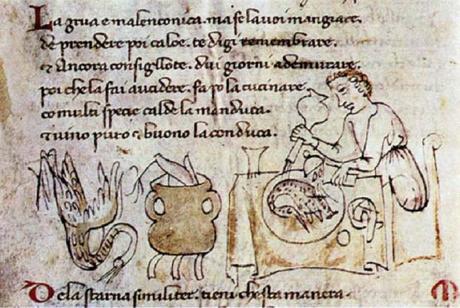 La grua e malenconica. ma se la uoi mangiare.
de prendere poi caloe. te digi remembrare.
& Ancora consigllote. dui giorni ademurare.
poi che la fai aucidere. fa po la cucinare.
co multi specie calde la manduca.
& uino puro & buono la conduca.
Dela starna similiter. tieni chesta manera